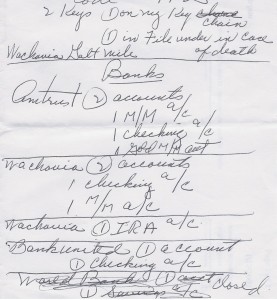 2 Keys ① on my Key chain
① in File under in case
of death
Wachovia Half mile
Banks
Amtrust ② accounts
1 M/M a/c
1 checking a/c
1 Gold M/M acct
Wachovia ② accounts
1 checking a/c
1 M/M a/c
Wachovia ① IRA a/c
Bankunited ① account
① Checking a/c
World Bank ① acct closed
① Savings a/c